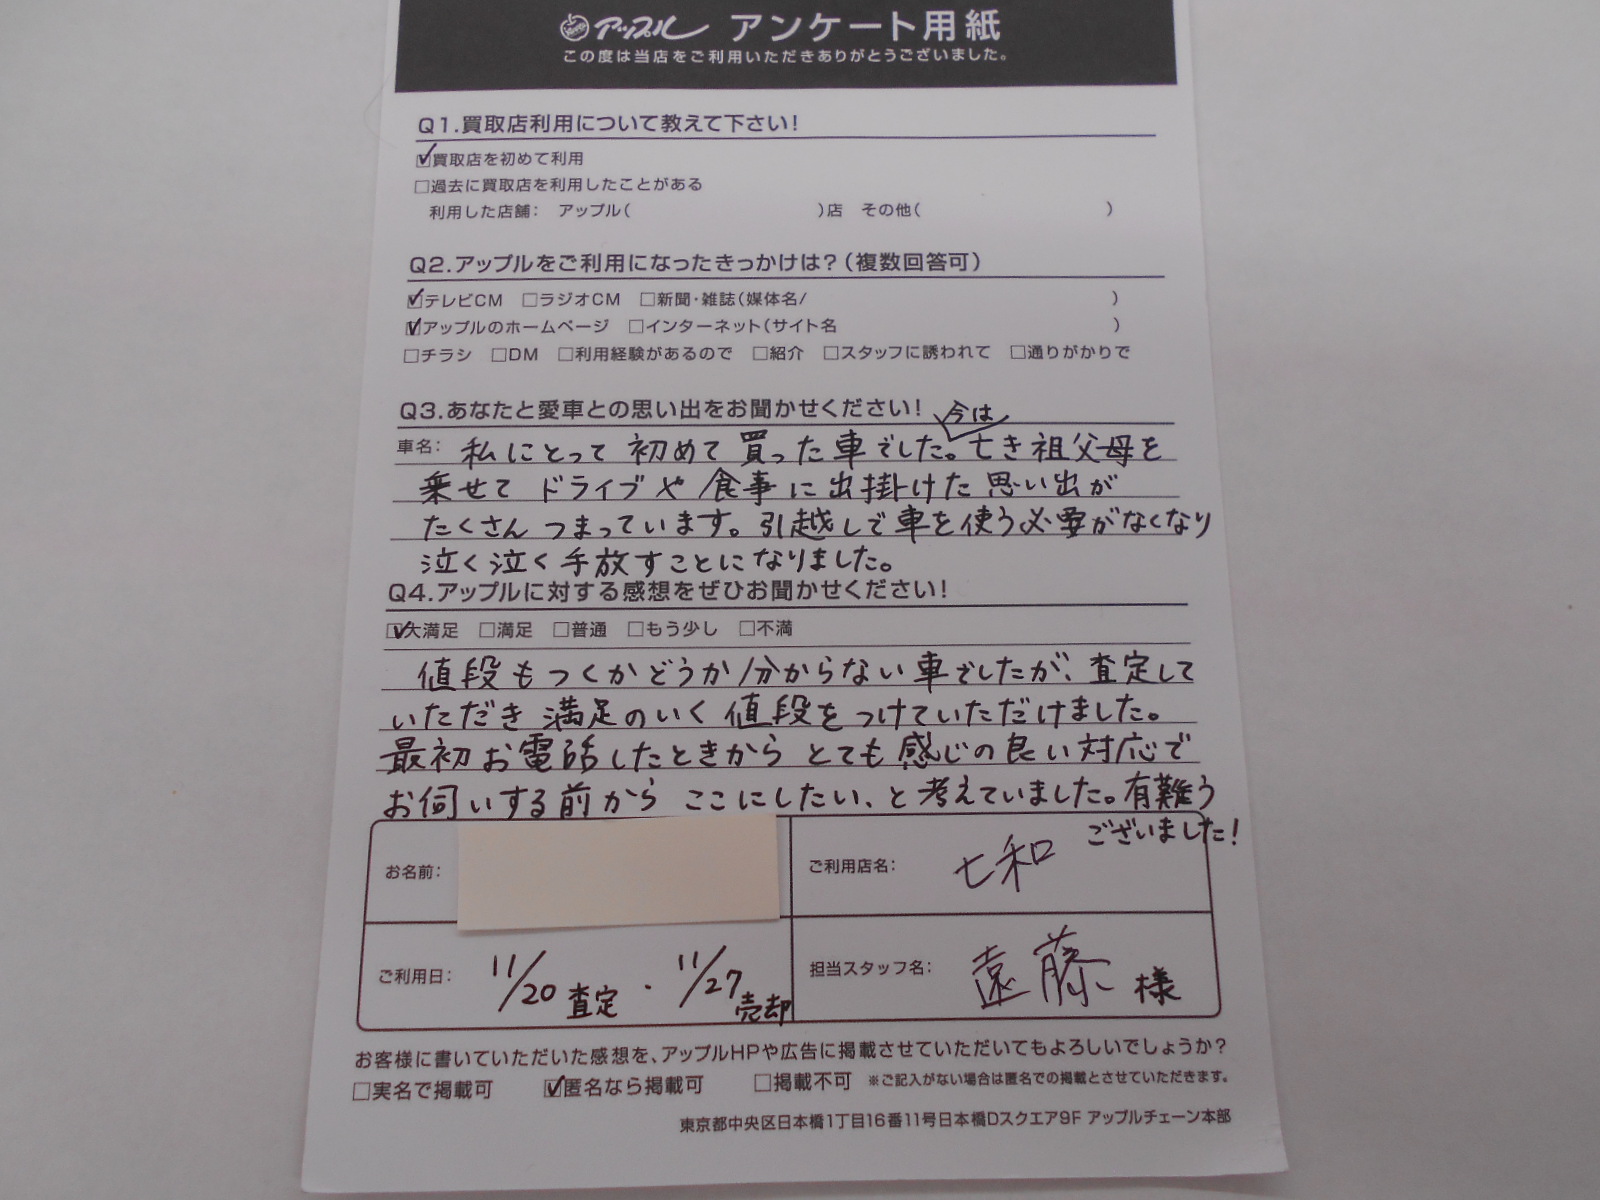 アップル アンケート用紙
この度は当店をご利用いただきありがとうございました。
Q1.買取店利用について教えて下さい!
☑買取店を初めて利用
□過去に買取店を利用したことがある
利用した店舗: アップル( )店 その他( )
Q2.アップルをご利用になったきっかけは?(複数回答可)
☑テレビCM □ラジオCM □新聞・雑誌(媒体名/ )
☑アップルのホームページ □インターネット(サイト名 )
□チラシ □DM □利用経験があるので □紹介 □スタッフに誘われて □通りがかりで
Q3.あなたと愛車との思い出をお聞かせください!
今は
車名: 私にとって初めて買った車でした。亡き祖父母を
乗せてドライブや食事に出掛けた思い出が
たくさんつまっています。引越しで車を使う必要がなくなり
泣く泣く手放すことになりました。
Q4.アップルに対する感想をぜひお聞かせください!
☑大満足 □満足 □普通 □もう少し □不満
値段もつくかどうか分からない車でしたが、査定して
いただき満足のいく値段をつけていただけました。
最初お電話したときからとても感じの良い対応で
お伺いする前からここにしたい、と考えていました。有難う
ございました!
お名前:
ご利用店名: 七和
ご利用日: 11/20 査定 ・ 11/27 売却
担当スタッフ名: 遠藤 様
お客様に書いていただいた感想を、アップルHPや広告に掲載させていただいてもよろしいでしょうか?
□実名で掲載可 ☑匿名なら掲載可 □掲載不可 ※ご記入がない場合は匿名での掲載とさせていただきます。
東京都中央区日本橋1丁目16番11号日本橋Dスクエア9F アップルチェーン本部